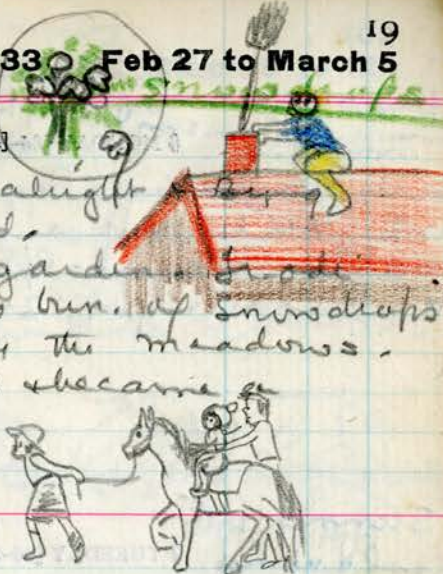 19
33 Feb 27 to March 5
Snowdrops
alight
garden.
bun. of Snowdrops
the meadows.
& became a